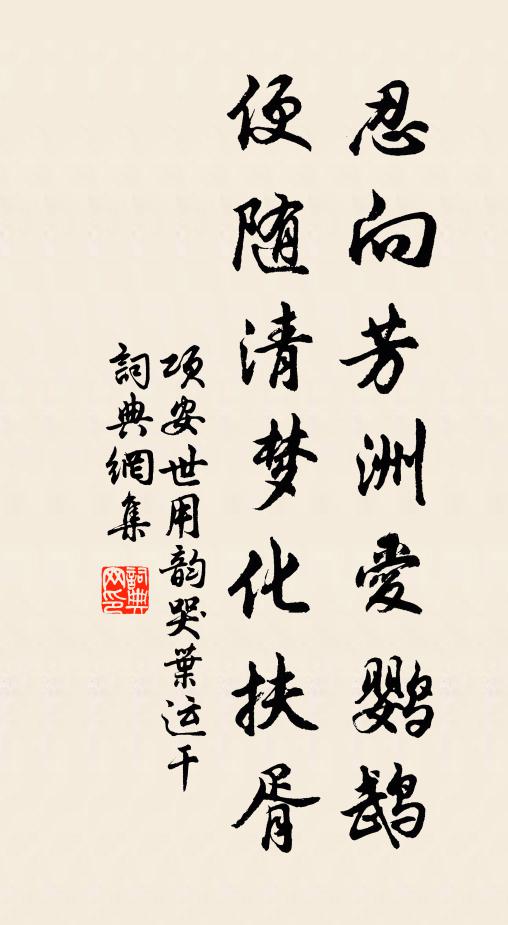 忍向芳洲愛鹦鹉
便随清梦化扶胥
项安世用韵哭葉运干
詞典網集
詞典
网印